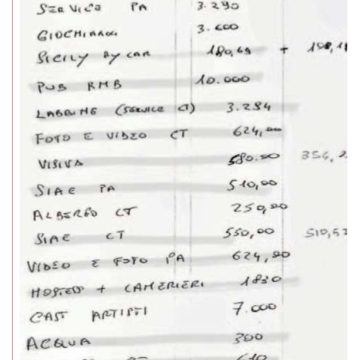 SERVICE PA 3.290
GIOCHIAMOCI 3.600
SICILY BY CAR 180,69 +
PUB RMB 10.000
LABELING (SERVICE CT) 3.294
FOTO E VIDEO CT 624,00
VISIVA 580.00 354,2
SIAE PA 510,00
ALBERGO CT 250,00
SIAE CT 550,00 510,5
VIDEO E FOTO PA 624,00
HOSTESS + CAMERIERI 1830
CAST ARTISTI 7.000
ACQUA 300